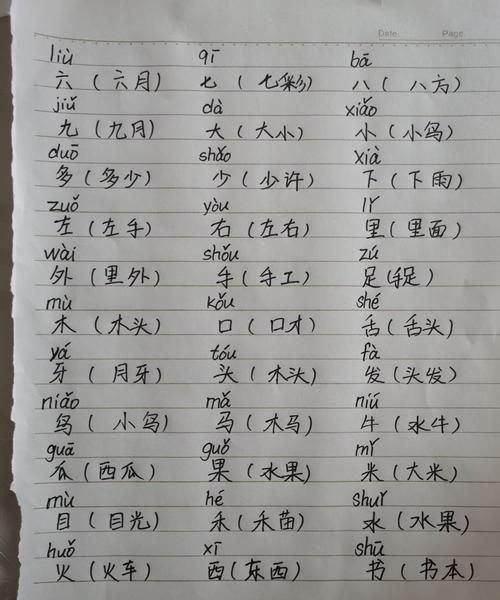 Date. Page.
liù qī bā
六（六月） 七（七彩） 八（八方）
jiǔ dà xiǎo
九（九月） 大（大小） 小（小鸟）
duō shǎo xià
多（多少） 少（少许） 下（下雨）
zuǒ yòu lǐ
左（左手） 右（左右） 里（里面）
wài shǒu zú
外（里外） 手（手工） 足（手足）
mù kǒu shé
木（木头） 口（口才） 舌（舌头）
yá tóu fà
牙（月牙） 头（木头） 发（头发）
niǎo mǎ niú
鸟（小鸟） 马（木马） 牛（水牛）
guā guǒ mǐ
瓜（西瓜） 果（水果） 米（大米）
mù hé shuǐ
目（目光） 禾（禾苗） 水（水果）
huǒ xī shū
火（火车） 西（东西） 书（书本）